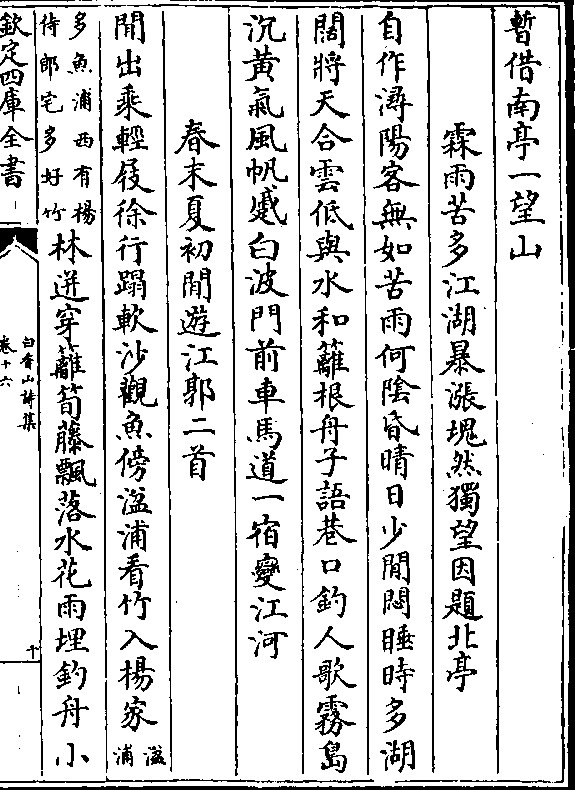 暫借南亭一望山
霖雨苦多江湖暴漲塊然獨望因題北亭
自作潯陽客無如苦雨何陰昏晴日少閒悶睡時多湖
闊將天合雲低與水和籬根舟子語巷口釣人歌霧島
沉黃氣風帆蹙白波門前車馬道一宿變江河
春末夏初閒遊江郭二首
閒出乘輕屐徐行蹋軟沙觀魚傍湓浦看竹入楊家湓浦
多魚浦西有楊侍郎宅多好竹林迸穿籬筍藤飄落水花雨埋釣舟小
欽定四庫全書
白香山詩集
卷十六
十